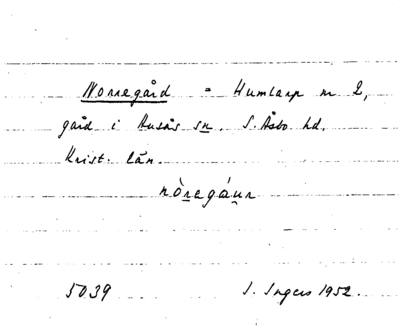 Norregård = Humlarp nr 2,
gård i Husås sn. S. Åsbo hd.
Krist. län.
nòregáun
5039 I. Ingers 1952.